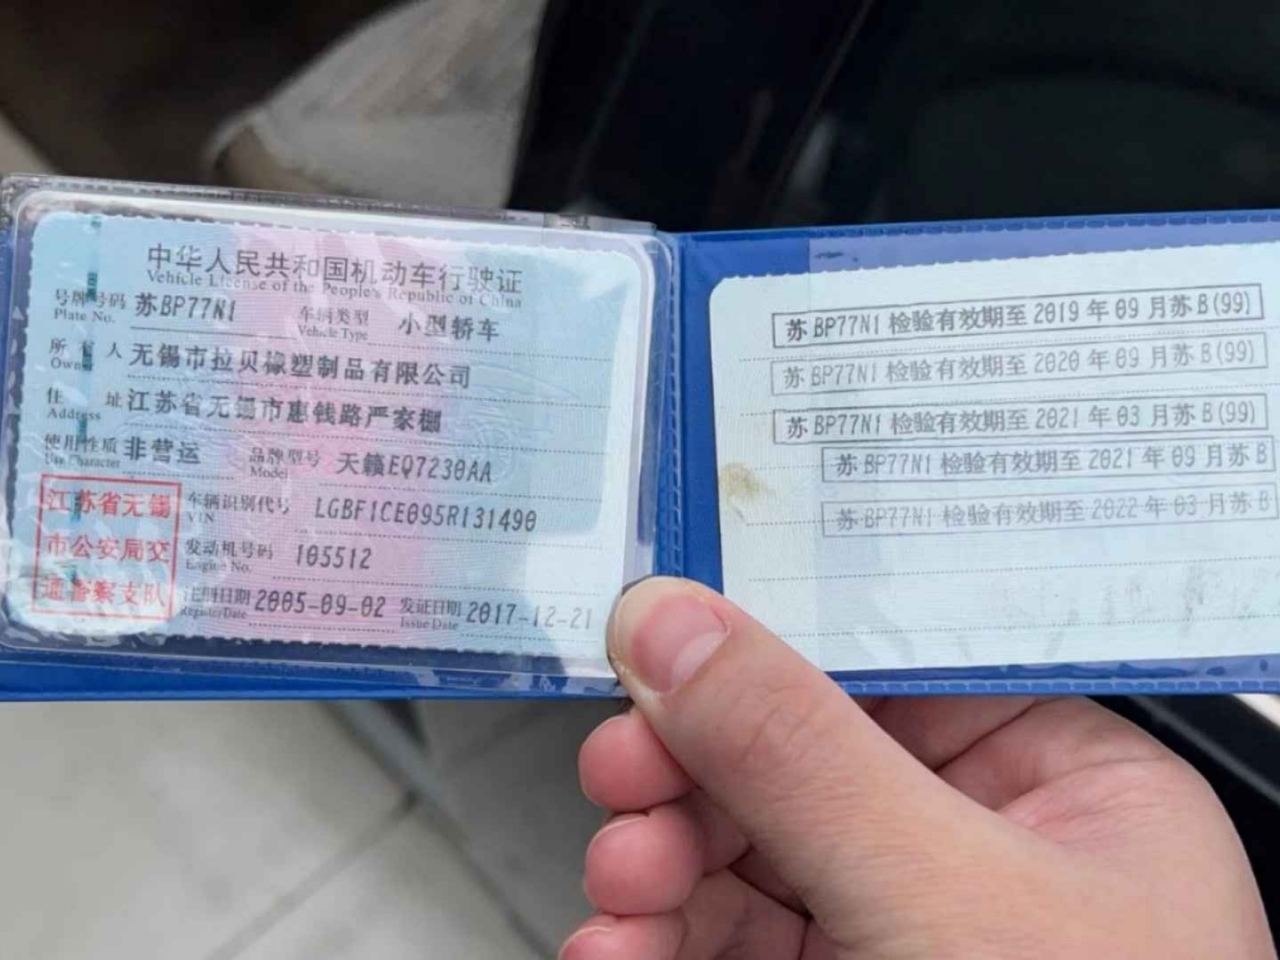 中华人民共和国机动车行驶证
Vehicle License of the People's Republic of China
号牌号码 苏BP77N1 车辆类型 小型轿车
Plate No. Vehicle Type
所有人 无锡市拉贝橡塑制品有限公司
Owner
住址 江苏省无锡市惠钱路严家棚
Address
使用性质 非营运 品牌型号 天籁EQ7230AA
Use Character Model
江苏省无锡
市公安局交
通警察支队
车辆识别代号 LGBF1CE095R131490
VIN
发动机号码 105512
Engine No.
注册日期 2005-09-02 发证日期 2017-12-21
Register Date Issue Date
苏BP77N1 检验有效期至 2019 年 09 月苏B(99)
苏BP77N1 检验有效期至 2020 年 09 月苏B(99)
苏BP77N1 检验有效期至 2021 年 03 月苏B(99)
苏BP77N1 检验有效期至 2021 年 09 月苏B
苏BP77N1 检验有效期至 2022 年 03 月苏B